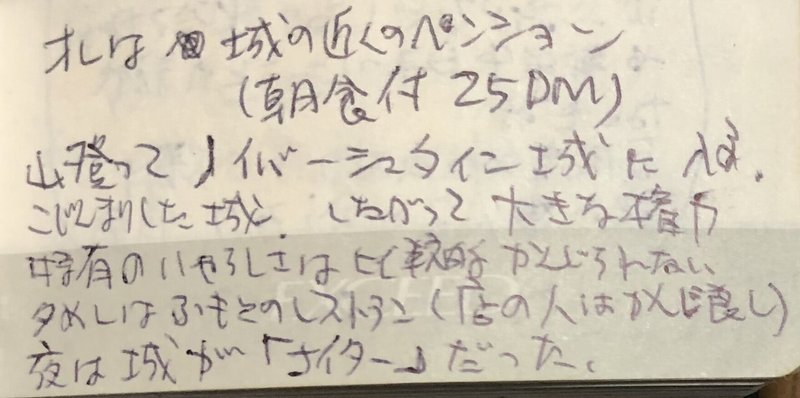 オレは 城の近くのペンション
(朝食付 25DM)
山登ってノイバーシュタイン城に
こじんまりした城. したがって大きな
特有のいやらしさは比較的かんじられない
夕めしはふもとのレストラン(店の人はかんじ良し)
夜は城が「ナイター」だった.